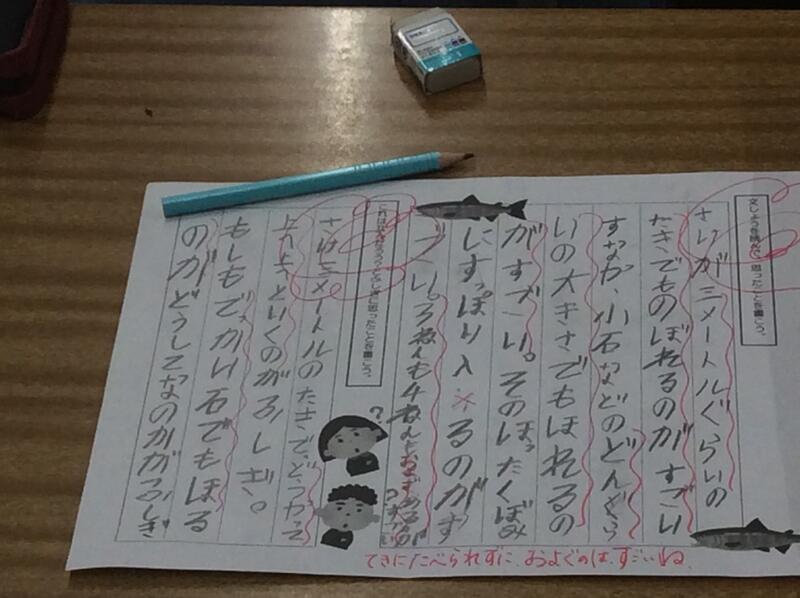 文しょうを読んで、思ったことを書こう。
さけが三メートルぐらいの
たきでものぼれるのがすごい
すなか、小石などのどんぐら
いの大きさでもほれるの
がすごい。そのほったくぼみ
にすっぽり入るのがす
ごい。3ねんも4ねんも
思ったことを書こう。
さけ三メートルのたきで、どうやって
といくのがふしぎ。
もしもでっかい石でもほる
のがどうしてなのかがふしぎ
てきにたべられずに、およぐのは、すごいね。